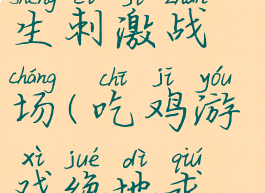 shēng cì jī zhàn
生刺激战
chǎng chī jī yóu
场(吃鸡游
xì jué dì qiú
戏绝地求